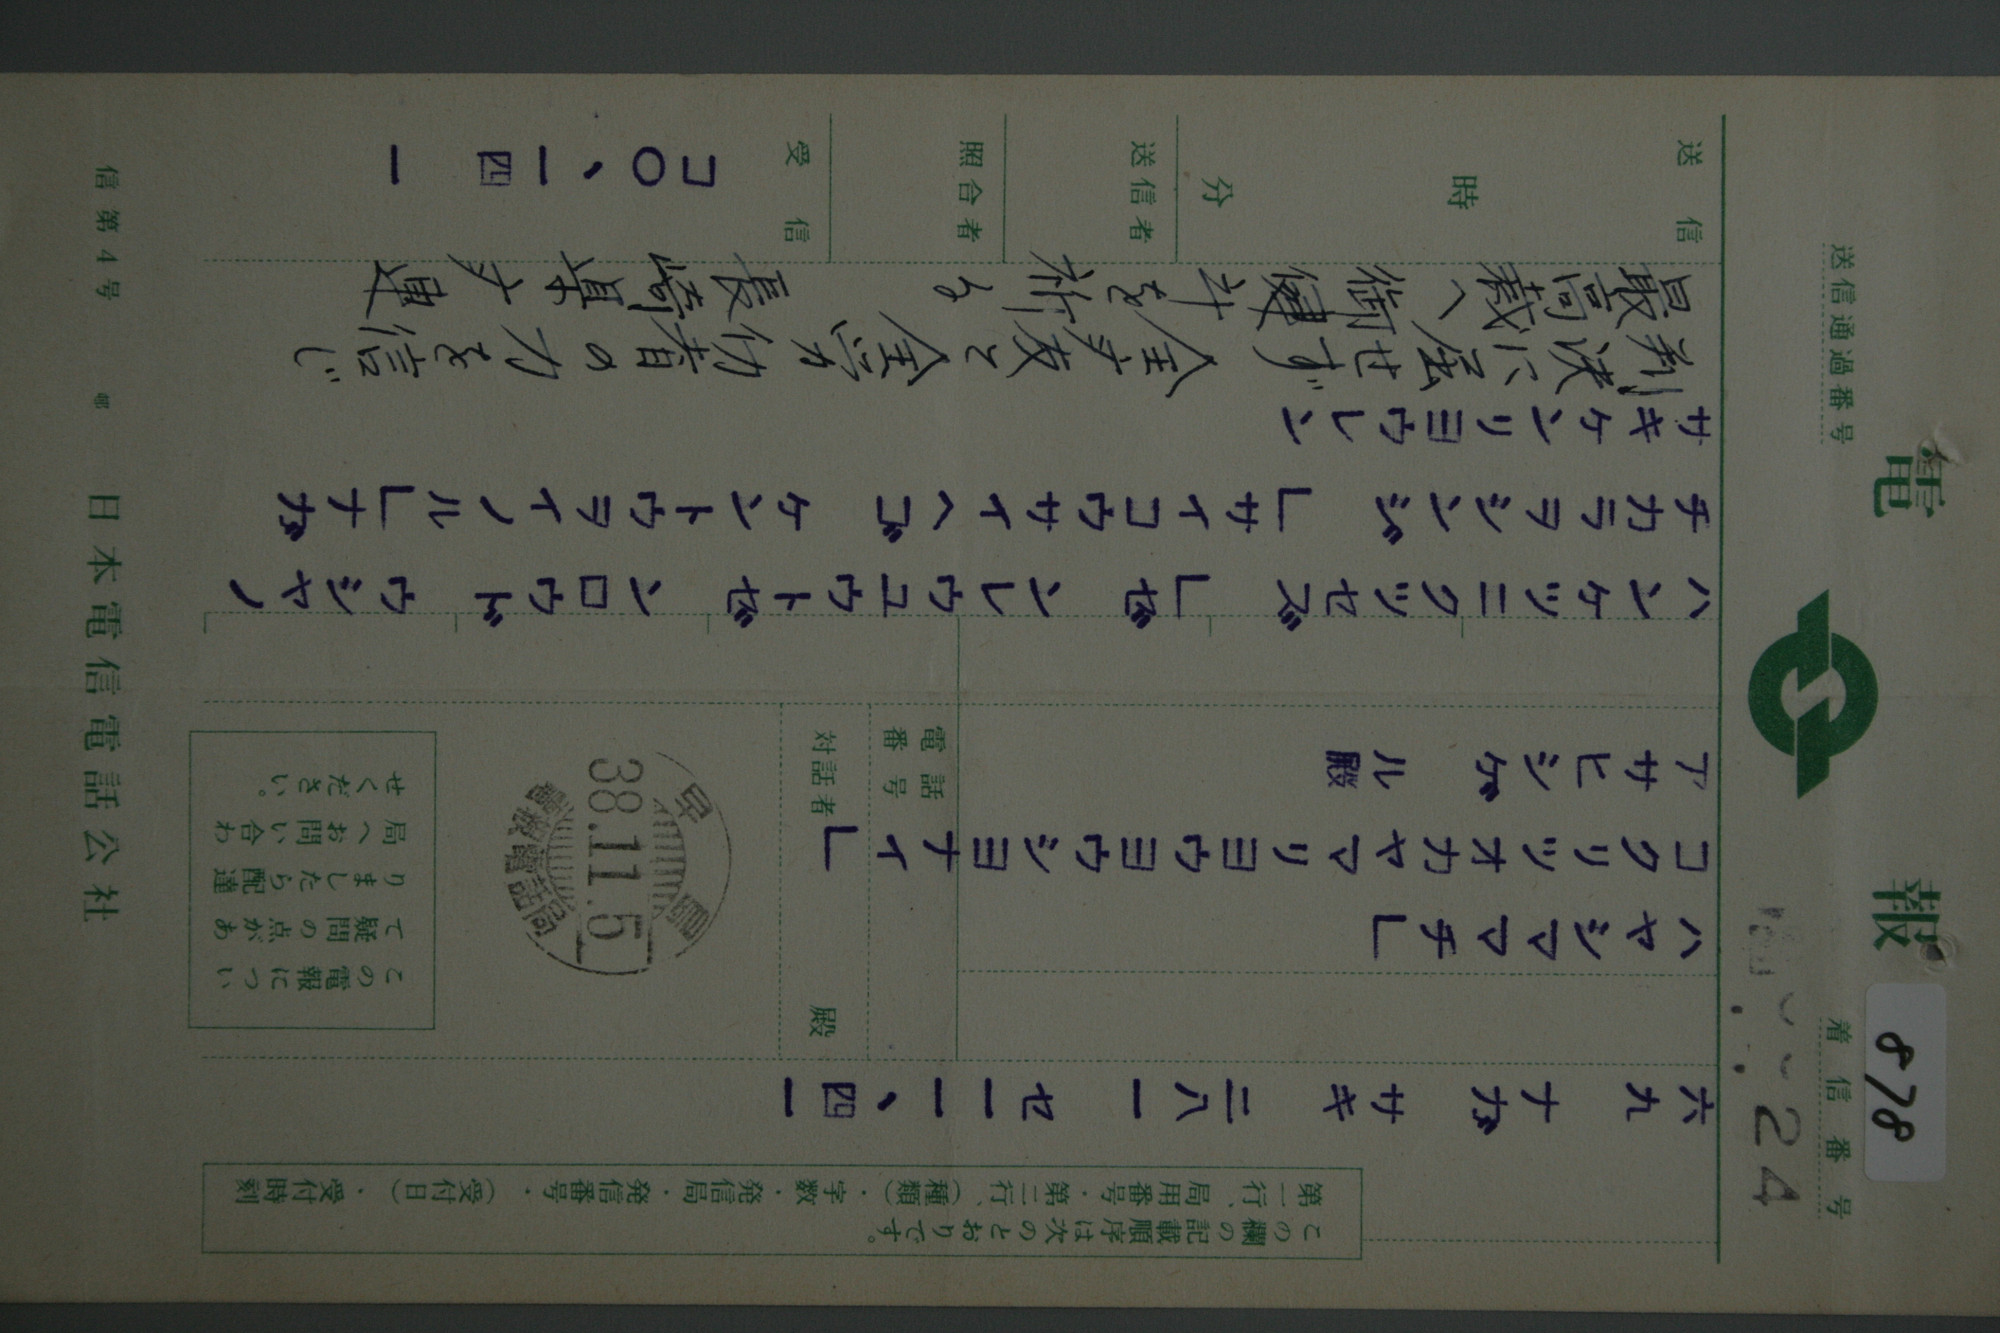 電報
送信通過番号
着信番号
24
878
この欄の記載順序は次のとおりです。
第一行、局用番号・第二行、(種類)・字数・発信局・発信番号・(受付日)・受付時刻
六九 ナガサキ 二八一 セ一一、四一
ハヤシママチL
コクリツオカヤマリヨウヨウシヨナイL
アサヒシゲル殿
電話番号
対話者 殿
早島
電報電話局
38.11.5
この電報につい
て疑問の点があ
りましたら配達
局へお問い合わ
せください。
ハンケツニクツセズ Lゼンレウユウトゼンロウドウシヤノ
チカラヲシンジ LサイコウサイヘゴケントウヲイノルLナガ
サキケンリヨウレン
判決に屈せず 全 友と全労仂者の力を信じ
最高裁へ御健斗を祈る 長崎県
送信
時
分
送信者
照合者
受信
コ〇、一四一
信第4号
日本電信電話公社